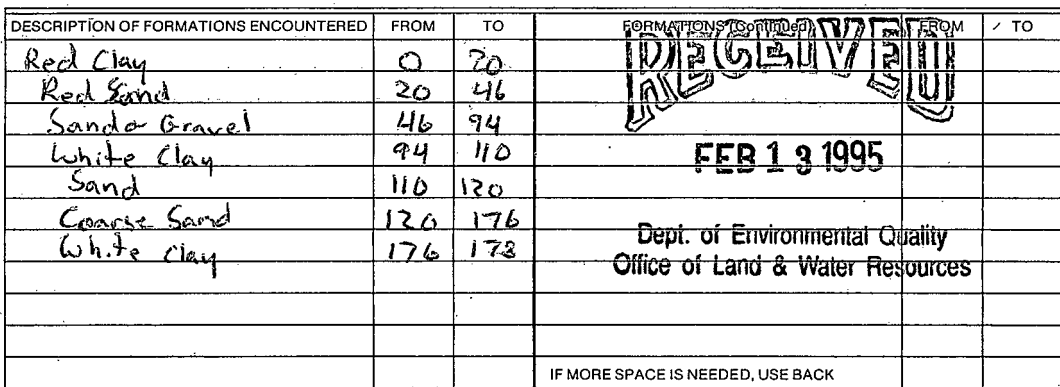 DESCRIPTION OF FORMATIONS ENCOUNTERED FROM TO FORMATIONS (Continued) FROM TO
RECEIVED
Red Clay 0 20
Red Sand 20 46
Sand & Gravel 46 94
White Clay 94 110
FEB 13 1995
Sand 110 120
Coarse Sand 120 176
Dept. of Environmental Quality
White Clay 176 178
Office of Land & Water Resources
IF MORE SPACE IS NEEDED, USE BACK